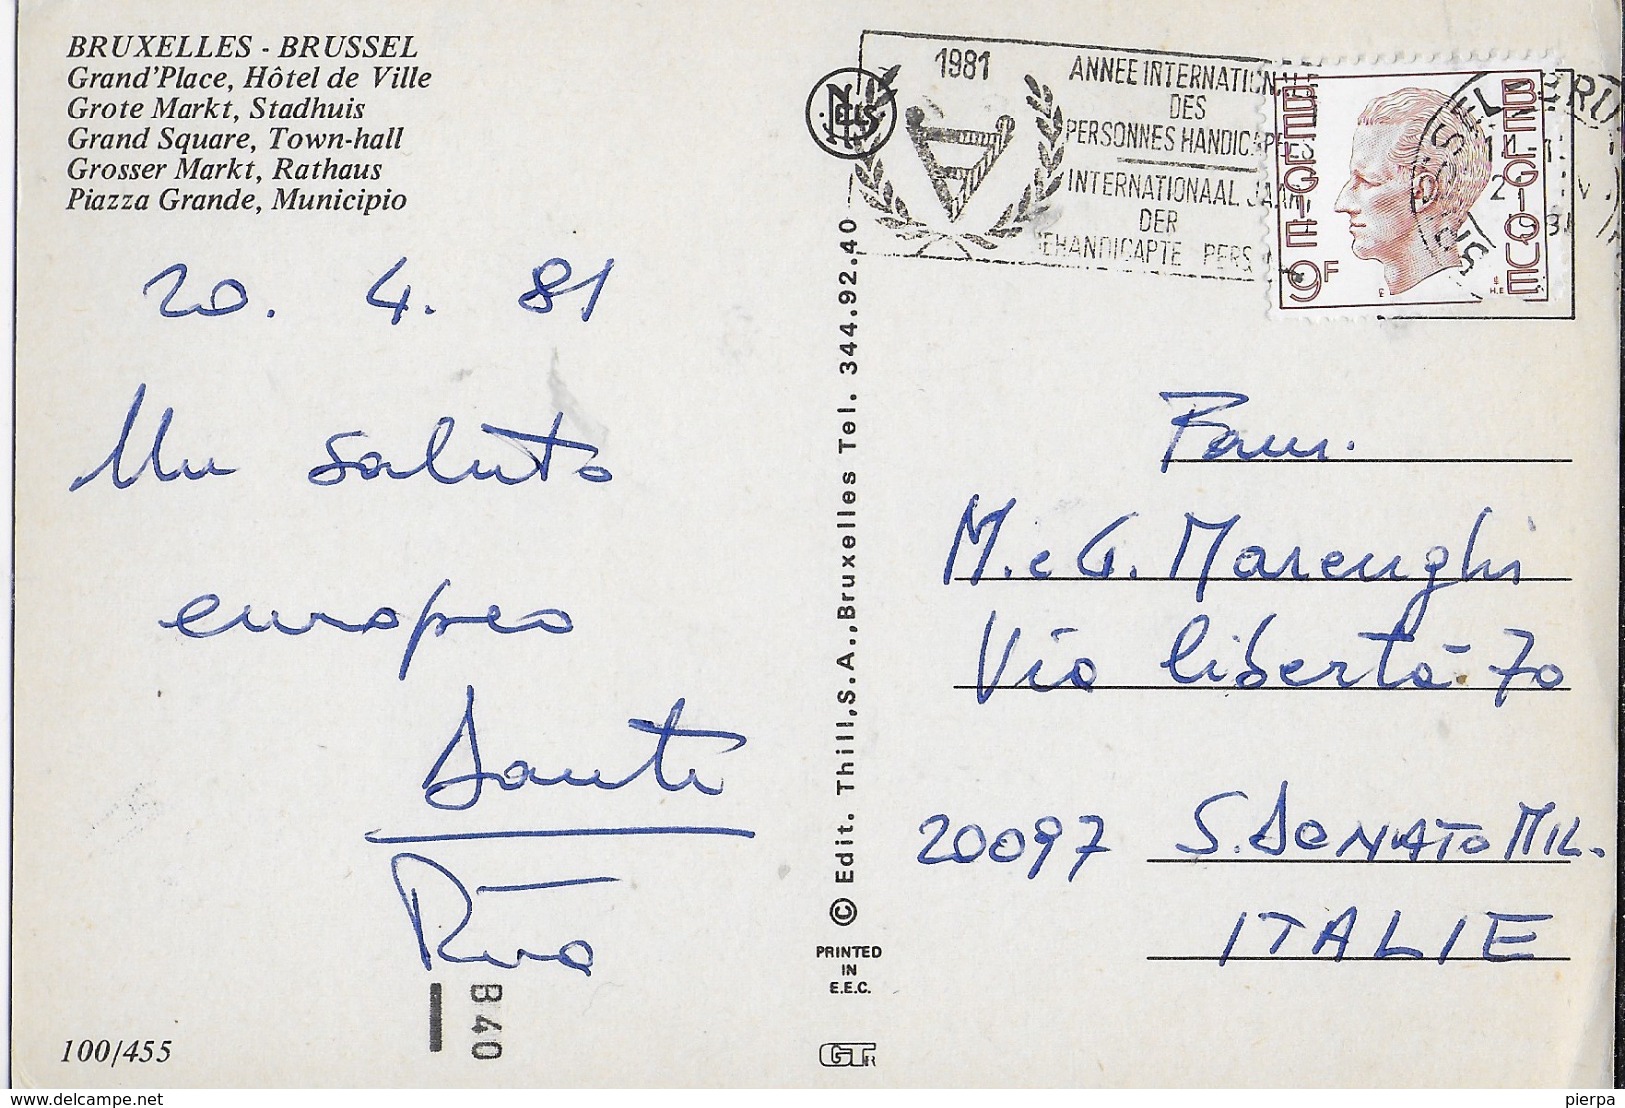 BRUXELLES - BRUSSEL
Grand'Place, Hôtel de Ville
Grote Markt, Stadhuis
Grand Square, Town-hall
Grosser Markt, Rathaus
Piazza Grande, Municipio
20. 4. 81
Un saluto
europeo
Dante
Rina
B40
100/455
© Edit. Thill,S.A.,Bruxelles Tel. 344.92.40
PRINTED
IN
E.E.C.
1981
ANNEE INTERNATION
DES
PERSONNES HANDICAPEES
INTERNATIONAAL JAAR
DER
EHANDICAPTE PERS
BELGIE
BELGIQUE
9F
Fam.
M. e G. Marenghi
Via libertà 70
20097 S. DONATO MIL.
ITALIE
delcampe.net
pierpa